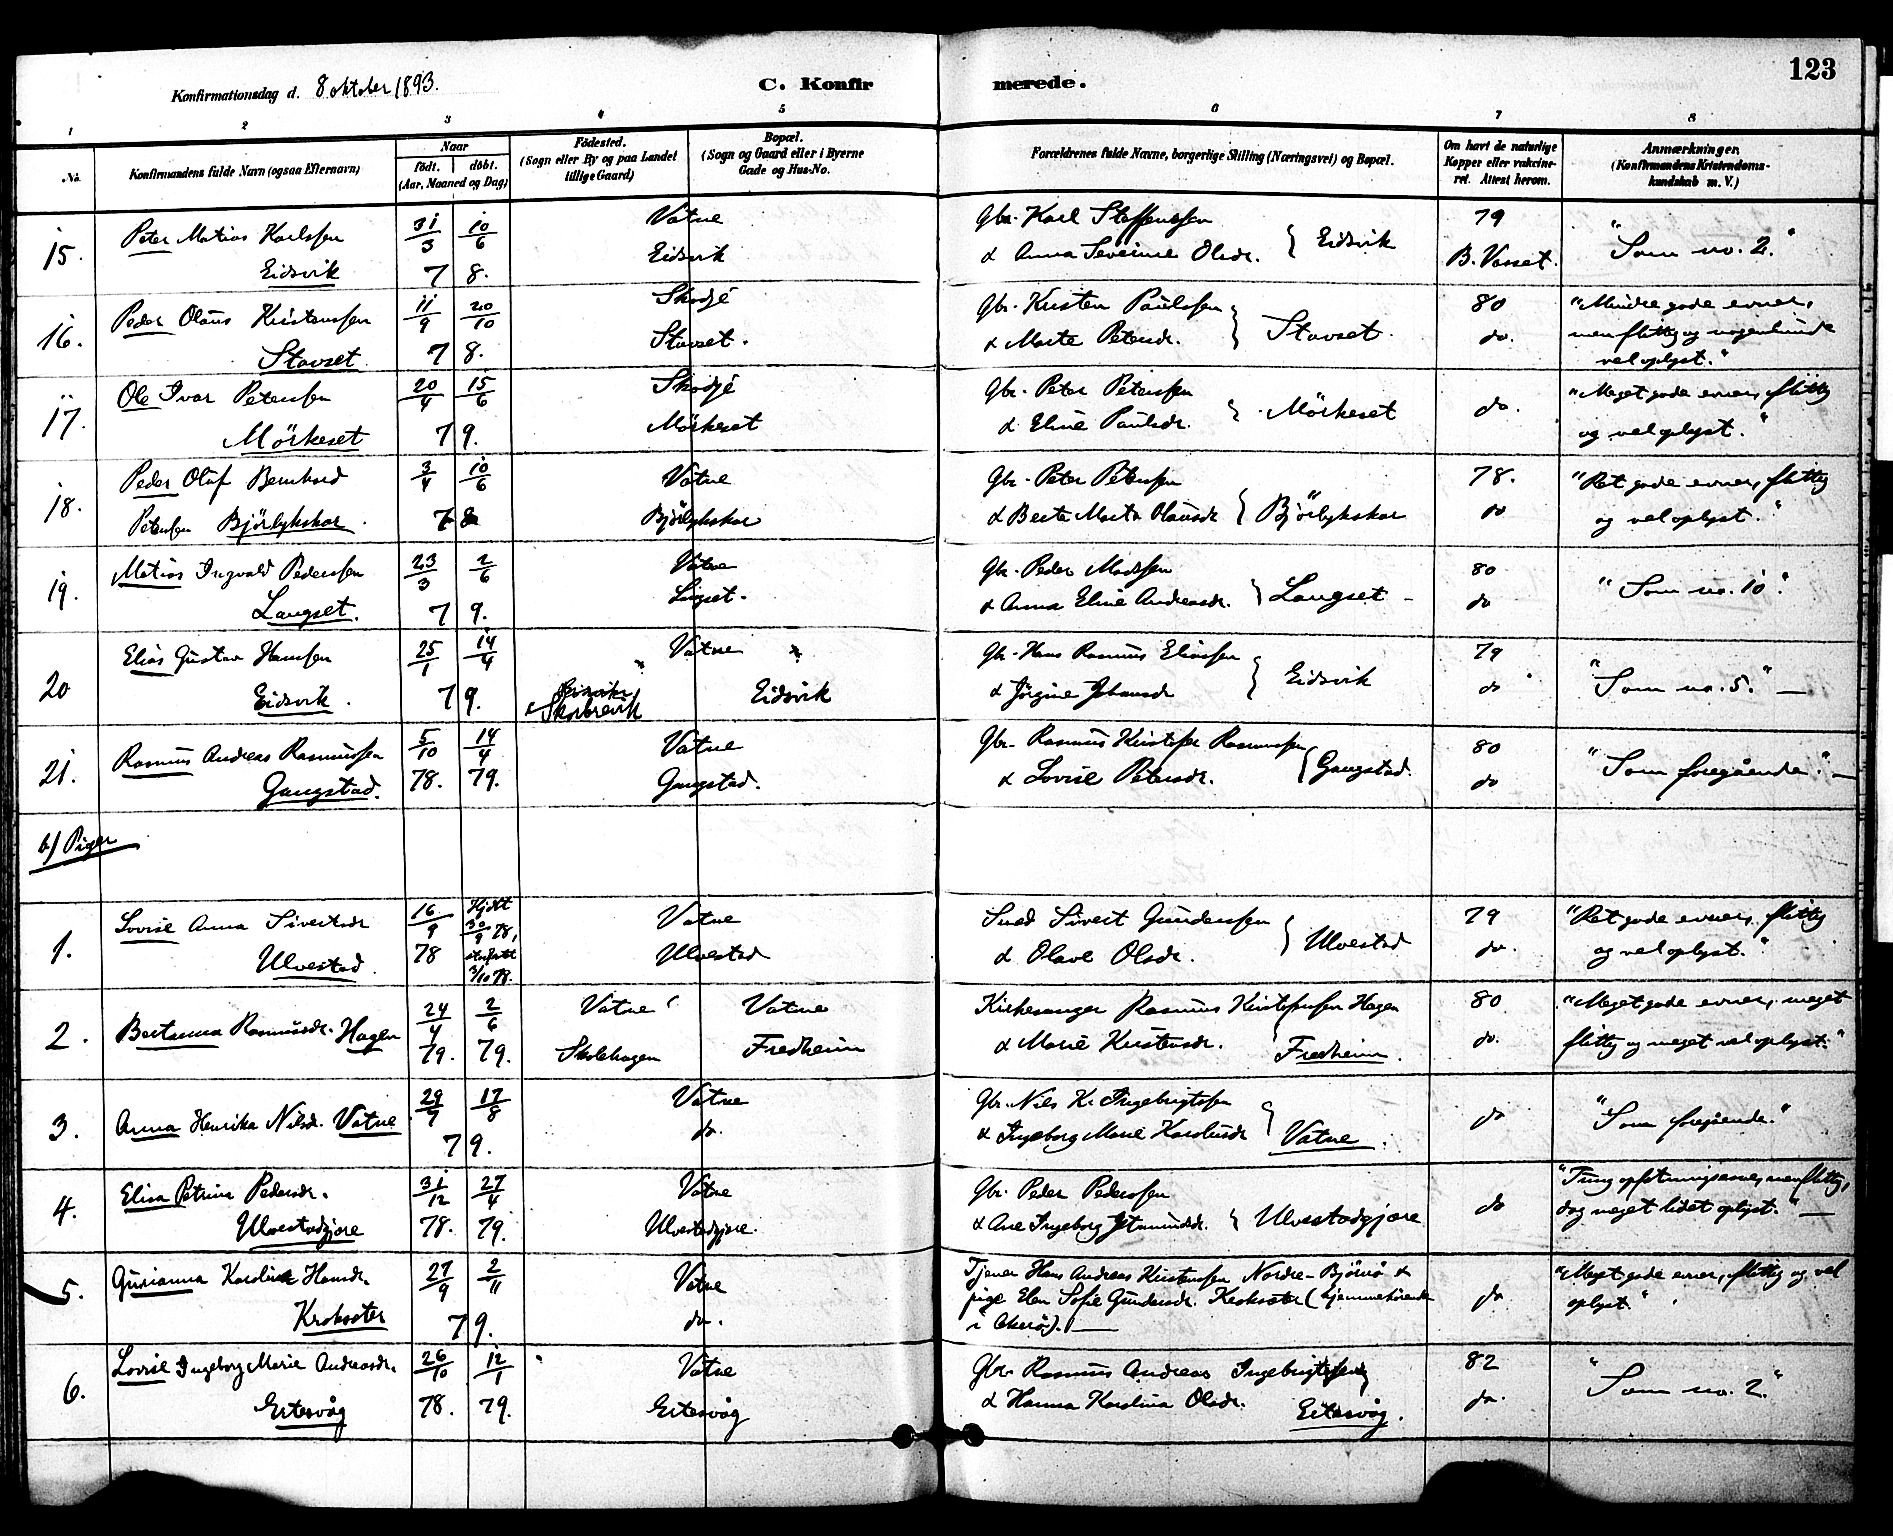 123
Konfirmationsdag d. 8 oktober 1893.
C. Konfir merede.
1 2 3 4 5 6 7 8
No.
Konfirmandens fulde Navn (ogsaa Efternavn)
Naar
født. døbt.
(Aar, Maaned og Dag)
Födested.
(Sogn eller By og paa Landet
tillige Gaard)
Bopæl.
(Sogn og Gaard eller i Byerne
Gade og Hus-No.
Forældrenes fulde Navne, borgerlige Stilling (Næringsvei) og Bopæl.
Om havt de naturlige
Kopper eller vakcine-
ret. Attest herom.
Anmærkninger.
(Konfirmandens Kristendoms-
kundskab m. V.)
15. Peter Matias Karlssen
Eidsvik
31/3 10/6
7 8.
Vatne
Eidsvik
Gbr. Karl Steffenssen
& Anna Severine Olsdr. } Eidsvik
79
B. Vasset.
"Som no. 2."
16. Peder Olaus Kristenssen
Stavset
11/9 20/10
7 8.
Skodje
Stavset.
Gbr. Kristen Paulssen
& Marte Petersdr. } Stavset.
80
do.
"Mindre gode evner,
men flittig og nogenlunde
vel oplyst."
17. Ole Ivar Peterssen
Mörkeset
20/4 15/6
7 9.
Skodje
Mörkeset
Gbr. Peter Peterssen
& Eline Paulsdr. } Mörkeset
do.
"Meget gode evner, flittig
og vel oplyst."
18. Peder Olaf Bernhard
Peterssen Björlykskar.
3/4 10/6
7 8
Vatne
Björlykskar
Gbr. Peter Peterssen
& Berte Marta Olausdr. } Björlykskar
78.
do
"Ret gode evner, flittig
og vel oplyst."
19. Matias Ingvald Pederssen
Langset.
23/3 2/6
7 9.
Vatne
Langset.
Gbr. Peder Madssen
& Anna Eline Andreasdr. } Langset
80
do
"Som no. 10".
20 Elias Gustav Hanssen
Eidsvik.
25/1 14/4
7 9.
Vatne
Skorbrevik
Eidsvik
Gbr. Hans Rasmus Eliassen
& Jørgine Johansdr } Eidsvik
79
do
"Som no. 5." —
21. Rasmus Andreas Rasmussen
Gangstad.
5/10 14/4
78. 79.
Vatne
Gangstad.
Gbr. Rasmus Kristofer Rasmussen
& Lovise Petersdr. } Gangstad.
80
do
"Som foregående." —
b) Piger
1. Lovise Anna Sivertsdr
Ulvestad.
16/9 Hjdbt
30/9 78,
78 stadfæstet
3/10 78.
Vatne
Ulvestad
Smed Sivert Gunderssen
& Olave Olsdr. } Ulvestad
79
do.
"Ret gode evner, flittig
og vel oplyst."
2. Bertinna Rasmusdr. Hagen
24/4 2/6
79. 79.
Vatne
Skolehagen
Vatne
Fredheim
Kirkesanger Rasmus Kristofersen Hagen
& Marie Kristensdr. } Fredheim.
80
do.
"Meget gode evner, meget
flittig og meget vel oplyst."
3. Anna Henrika Nilsdr. Vatne
29/7 17/8
7 9.
Vatne
do.
Gbr. Nils K. Ingebrigtssen
& Ingeborg Marie Karolusdr } Vatne.
do
"Som foregående."
4. Elisa Petrine Pedersdr.
Ulvestadgjære
31/12 27/4
78. 79.
Vatne
Ulvestadgjære.
Gbr. Peder Pederssen
& Ane Ingeborg Jetmundsdr. } Ulvestadgjære
do
"Tung opfatningsevne, men flittig,
dog meget lidet oplyst." —
5. Gurianna Karoline Hansdr.
Kroksæter
27/9 2/11
7 9.
Vatne
do.
Tjener Hans Andreas Kristenssen Nordre-Björnö &
pige Elen Sofie Gundersdr. Kroksæter (hjemmehörende
i Akerö). —
do
"Meget gode evner, flittig og vel
oplyst."
6. Lovise Ingeborg Marie Andreasdr.
Eitesvåg
26/10 12/1
78. 79.
Vatne
Eitesvåg
Gbr. Rasmus Andreas Ingebrigtssen
& Hanna Karolina Olsdr. } Eitesvåg.
82
do.
"Som no. 2."